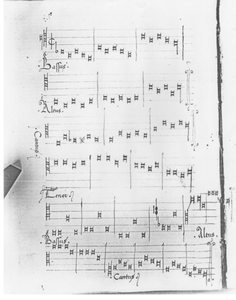 Bassus.
Altus.
Cantus.
Tenor.
Bassus.
Altus.
Cantus.